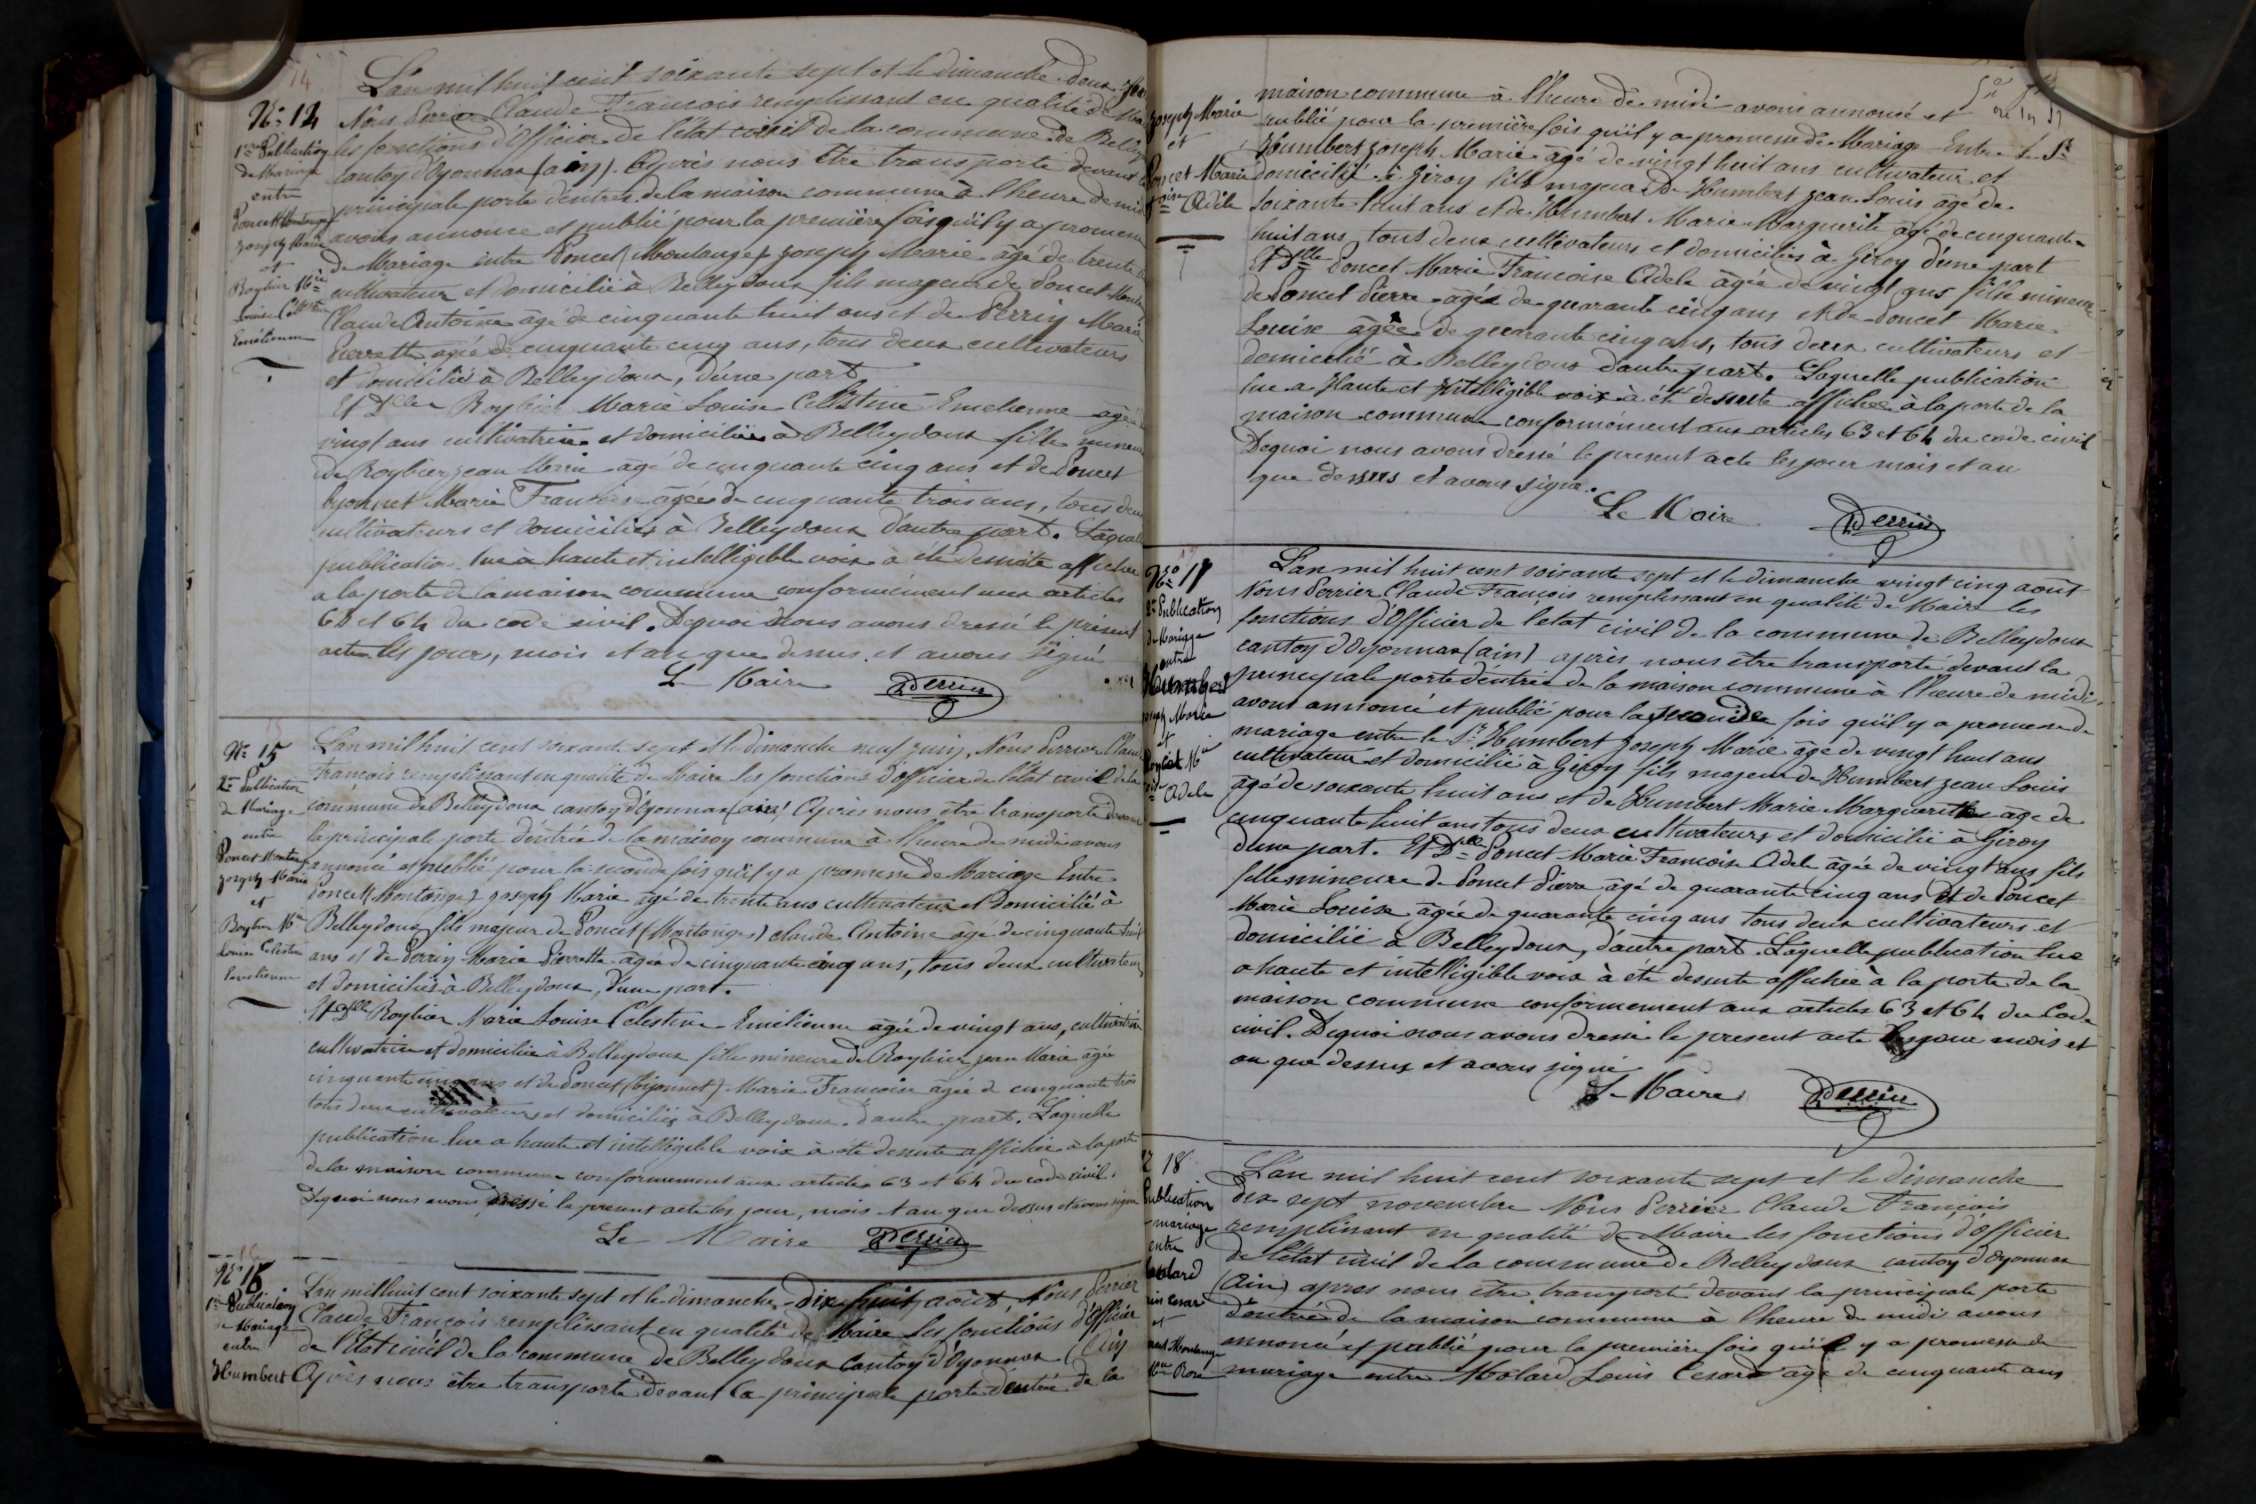 14
L'an mil huit cent soixante sept et le dimanche deux
Nos 14
Nous Perrier Claude François remplissant en qualité de
1re Publication
de Mariage
entre
Poncet Montange
Joseph Marie
et
Roybier Mie
Louise Céléstine
Emélienne
les fonctions d'Officier de l'état civil de la commune de
canton d'Oyonnax (ain). Après nous être transporté devant
principale porte d'entrée de la maison commune à l'heure de
avons annoncé et publié pour la première fois qu'il y a promesse
de Mariage entre Poncet (Montange) Joseph Marie âgé de trente
cultivateur et domicilié à Belleydoux fils majeur de Poncet
Claude Antoine âgé de cinquante huit ans et de Perrin Marie
Pierrette agée de cinquante cinq ans, tous deux cultivateurs
et domiciliés à Belleydoux, d'une part
Et Dlle Roybier Marie Louise Celéstine Emelienne agée
vingt ans cultivatrice et domiciliée à Belleydoux fille
de Roybier Jean Marie âgé de cinquante cinq ans et de Poncet
Marie Françoise agée de cinquante trois ans, tous
cultivateurs et domiciliés à Belleydoux d'autre part.
publication lue à haute et intelligible voix à été desuite
a la porte de la maison commune conformément aux articles
63 et 64 du code civil. Dequoi nous avons dressé le présent
acte les jour, mois et an que dessus et avons signé
Le Maire Perrier
No 15
2me Publication
de Mariage
entre
Poncet Montange
Joseph Marie
et
Roybier Mie
Louise Celestine
Emelienne
L'an mil huit cent soixante sept et le dimanche neuf juin, Nous Perrier
François remplissant en qualité de Maire les fonctions d'officier de l'état civil de la
commune de Belleydoux canton d'Oyonnax (ain) Après nous être transporté devant
la principale porte d'entrée de la maison commune à l'heure de midi avons
annoncé et publié pour la seconde fois qu'il y a promesse de Mariage Entre
Poncet (Montange) Joseph Marie âgé de trente ans cultivateur et domicilié à
Belleydoux fils majeur de Poncet (Montange) claude Antoine âgé de cinquante huit
ans et de Perrin Marie Pierrette agée de cinquante cinq ans, tous deux cultivateurs
et domiciliés à Belleydoux, d'une part.
Et Dlle Roybier Marie Louise Celestine Emélienne agée de vingt ans, cultivatrice
cultivatrice et domiciliée à Belleydoux fille mineure de Roybier Jean Marie âgé
cinquante cinq ans et de Poncet (Byonnet) Marie Françoise âgée de cinquante trois
tous deux cultivateurs et domiciliés à Belleydoux d'autre part. Laquelle
publication lue a haute et intelligible voix à été desuite affichée à la porte
de la maison commune conformement aux articles 63 et 64 du code civil.
Dequoi nous avons dressé le présent acte les jour, mois et an que dessus et avons signé
Le Maire Perrier
No 16
1re Publication
de Mariage
entre
Humbert
L'an mil huit cent soixante sept et le dimanche dix huit août, Nous Perrier
Claude François remplissant en qualité de Maire les fonctions d'Officier
de l'état civil de la commune de Belleydoux canton d'Oyonnax (Ain
Après nous être transporté devant la principale porte d'entrée de la
Joseph Marie
et
Poncet Marie
Adèle
maison commune à l'heure de midi avons annoncé et
publié pour la première fois qu'il y a promesse de Mariage Entre le Sr
Humbert Joseph Marie âgé de vingt huit ans cultivateur et
domicilié à Giroy fils majeur de Humbert Jean Louis âgé de
soixante huit ans et de Humbert Marie Marguerite âgé de cinquante
huit ans, tous deux cultivateurs et domiciliés à Giroy d'une part
Et Dlle Poncet Marie Françoise Adele âgée de vingt ans fille mineure
de Poncet Pierre âgé de quarante cinq ans et de Poncet Marie
Louise âgée de quarante cinq ans, tous deux cultivateurs et
domicilié à Belleydoux d'autre part. Laquelle publication
lue a Haute et Intelligible voix à été desuite affichée à la porte de la
maison commune conformément aux articles 63 et 64 du code civil
Dequoi nous avons dressé le present acte les jour mois et an
que dessus et avons signé.
Le Maire Perrier
No 17
2e Publication
de Mariage
entre
Humbert
Joseph Marie
et
Poncet Mie
Adele
L'an mil huit cent soixante sept et le dimanche vingt cinq août
Nous Perrier Claude François remplissant en qualité de Maire les
fonctions d'Officier de l'etat civil de la commune de Belleydoux
canton d'Oyonnax (ain) après nous être transporté devant la
principale porte d'entrée de la maison commune à l'heure de midi,
avons annoncé et publié pour la seconde fois qu'il y a promesse de
mariage entre le Sr Humbert Joseph Marie âgé de vingt huit ans
cultivateur et domicilié à Giroy fils majeur de Humbert Jean Louis
âgé de soixante huit ans et de Humbert Marie Marguerite âgé de
cinquante huit ans tous deux cultivateurs et domicilié à Giroy
d'une part. Et Dlle Poncet Marie Françoise Adele âgée de vingt ans fils
fille mineure de Poncet Pierre âgé de quarante cinq ans et de Poncet
Marie Louise âgée de quarante cinq ans tous deux cultivateurs et
domicilié à Belleydoux, d'autre part. Laquelle publication lue
a haute et intelligible voix à été desuite affichée à la porte de la
maison commune conformement aux articles 63 et 64 du Code
civil. Dequoi nous avons dressé le present acte les jour mois et
an que dessus et avons signé
Le Maire Perrier
18
Publication
mariage
entre
L'an mil huit cent soixante sept et le dimanche
dix sept novembre Nous Perrier Claude François
remplissant en qualité de Maire les fonctions d'Officier
de l'état civil de la commune de Belleydoux canton d'Oyonnax
(Ain) apres nous être transporté devant la principale porte
d'entrée de la maison commune à l'heure de midi avons
annoncé et publié pour la première fois qu'il y a promesse de
mariage entre Molard Louis Cesard âgé de cinquante ans